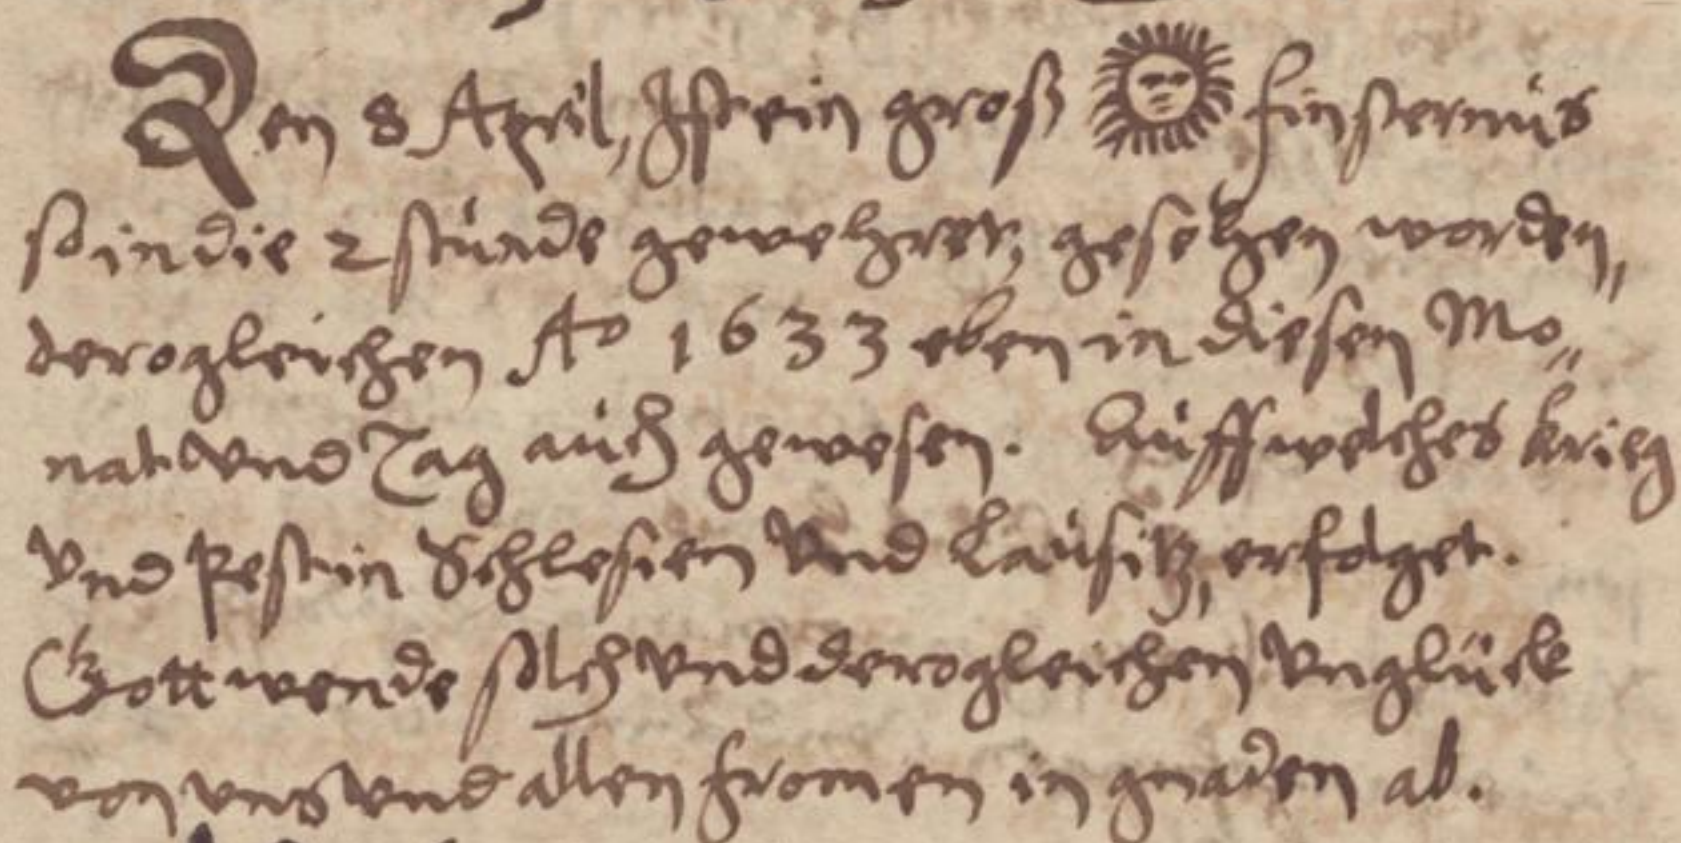 Den 8 April, Ist ein groß ☉ finsternüs
so in die 2 stunde gewehret, gesehen worden,
derogleichen Ao 1633 eben in diesen Mo„
nat vnd Tag auch gewesen. Auff welches krieg
vnd Pest in Schlesien vnd Lausitz, erfolget.
Gott wende solch vnd derogleichen vnglück
von vns vnd allen fromen in gnaden ab.